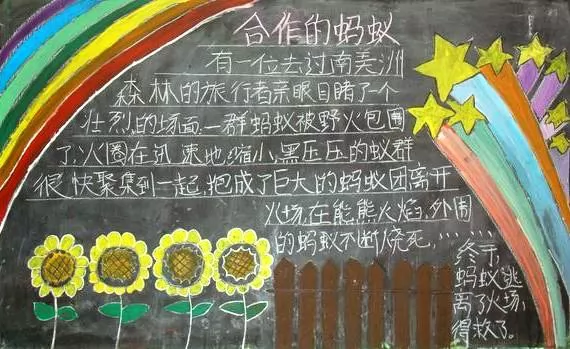 合作的蚂蚁
有一位去过南美洲
森林的旅行者亲眼目睹了一个
壮烈的场面.一群蚂蚁被野火包围
了,火圈在迅速地缩小,黑压压的蚁群
很快聚集到一起,抱成了巨大的蚂蚁团离开
火场,在熊熊火焰,外围
的蚂蚁不断烧死,……
终于,
蚂蚁逃
离了火场,
得救了。